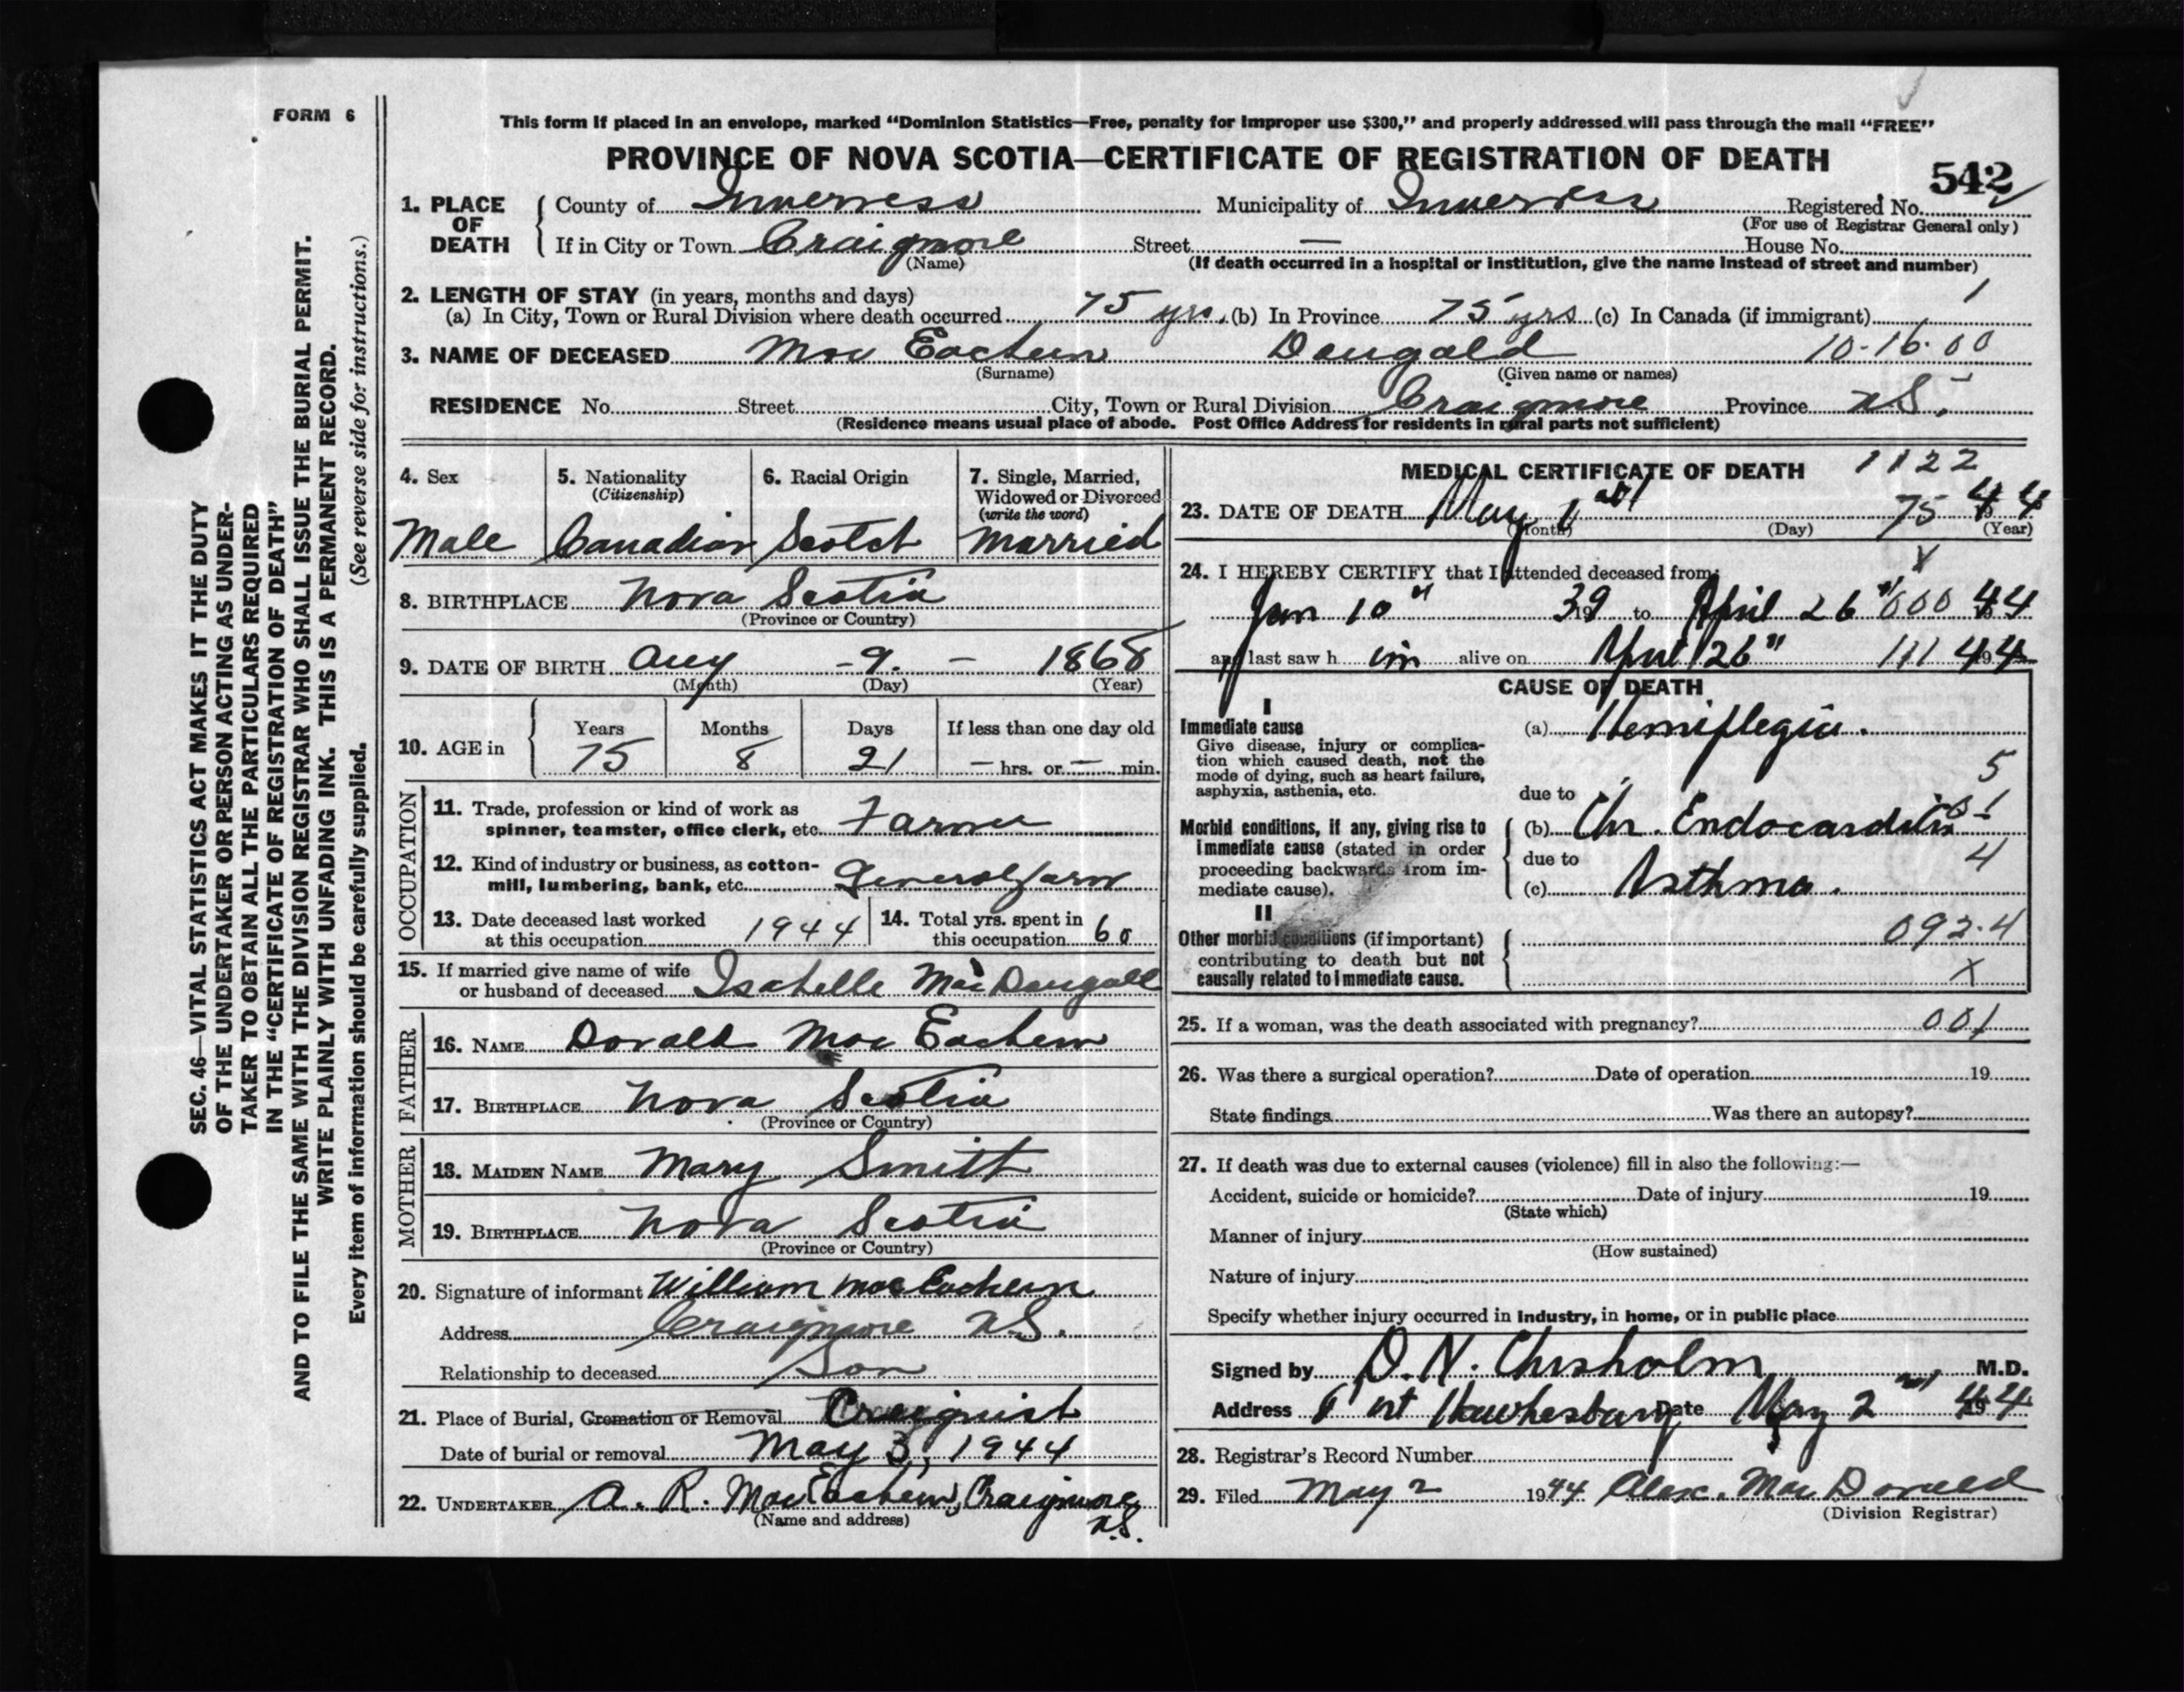 FORM 6
This form if placed in an envelope, marked "Dominion Statistics—Free, penalty for improper use $300," and properly addressed will pass through the mail "FREE"
PROVINCE OF NOVA SCOTIA—CERTIFICATE OF REGISTRATION OF DEATH
542
1. PLACE OF DEATH
County of Inverness Municipality of Inverness Registered No.
(For use of Registrar General only)
If in City or Town Craigmore Street — House No.
(Name) (If death occurred in a hospital or institution, give the name instead of street and number)
2. LENGTH OF STAY (in years, months and days) 1
(a) In City, Town or Rural Division where death occurred 75 yrs. (b) In Province 75 yrs (c) In Canada (if immigrant)
3. NAME OF DECEASED Mac Eachern Dougald 10-16-00
(Surname) (Given name or names)
RESIDENCE No. Street City, Town or Rural Division Craigmore Province N.S.
(Residence means usual place of abode. Post Office Address for residents in rural parts not sufficient)
4. Sex 5. Nationality 6. Racial Origin 7. Single, Married,
(Citizenship) Widowed or Divorced
(write the word)
Male Canadian Scotch Married
8. BIRTHPLACE Nova Scotia
(Province or Country)
9. DATE OF BIRTH Aug - 9 - 1868
(Month) (Day) (Year)
10. AGE in
Years Months Days If less than one day old
75 8 21 — hrs. or — min.
OCCUPATION
11. Trade, profession or kind of work as
spinner, teamster, office clerk, etc. Farmer
12. Kind of industry or business, as cotton-
mill, lumbering, bank, etc. General farm
13. Date deceased last worked
at this occupation 1944
14. Total yrs. spent in
this occupation 60
15. If married give name of wife
or husband of deceased Isabelle MacDougall
FATHER
16. NAME Donald Mac Eachern
17. BIRTHPLACE Nova Scotia
(Province or Country)
MOTHER
18. MAIDEN NAME Mary Smith
19. BIRTHPLACE Nova Scotia
(Province or Country)
20. Signature of informant William MacEachern
Address Craigmore N.S.
Relationship to deceased Son
21. Place of Burial, Cremation or Removal Creignish
Date of burial or removal May 3, 1944
22. UNDERTAKER A. R. MacEachern, Craigmore,
(Name and address) N.S.
MEDICAL CERTIFICATE OF DEATH 1122
23. DATE OF DEATH May 1 75 44
(Month) (Day) (Year)
24. I HEREBY CERTIFY that I attended deceased from:
Jan 10" 1939 to April 26" 000 1944
and last saw h im alive on April 26" 111 1944
CAUSE OF DEATH
I
Immediate cause
Give disease, injury or complica-
tion which caused death, not the
mode of dying, such as heart failure,
asphyxia, asthenia, etc.
(a) Hemiplegia.
5
due to
Morbid conditions, if any, giving rise to
immediate cause (stated in order
proceeding backwards from im-
mediate cause).
(b) Chr. Endocarditis
due to 4
(c) Asthma.
II
Other morbid conditions (if important)
contributing to death but not
causally related to immediate cause.
092.4
X
25. If a woman, was the death associated with pregnancy? 001
26. Was there a surgical operation? Date of operation 19
State findings Was there an autopsy?
27. If death was due to external causes (violence) fill in also the following:—
Accident, suicide or homicide? Date of injury 19
(State which)
Manner of injury
(How sustained)
Nature of injury
Specify whether injury occurred in industry, in home, or in public place
Signed by D. N. Chisholm M.D.
Address Port Hawkesbury Date May 2nd 1944
28. Registrar's Record Number
29. Filed May 2 1944 Alex. MacDonald
(Division Registrar)
SEC. 46—VITAL STATISTICS ACT MAKES IT THE DUTY
OF THE UNDERTAKER OR PERSON ACTING AS UNDER-
TAKER TO OBTAIN ALL THE PARTICULARS REQUIRED
IN THE "CERTIFICATE OF REGISTRATION OF DEATH"
AND TO FILE THE SAME WITH THE DIVISION REGISTRAR WHO SHALL ISSUE THE BURIAL PERMIT.
WRITE PLAINLY WITH UNFADING INK. THIS IS A PERMANENT RECORD.
Every item of information should be carefully supplied. (See reverse side for instructions.)